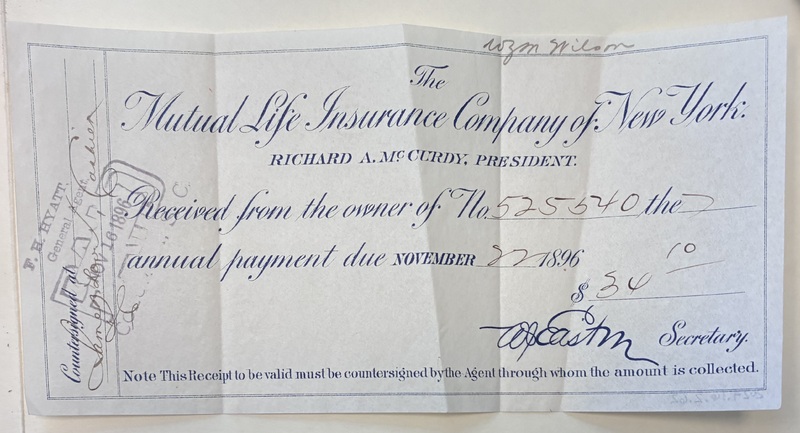 Wm Wilson
The
Mutual Life Insurance Company of New York.
RICHARD A. McCURDY, PRESIDENT.
Received from the owner of No. 525540 the
annual payment due NOVEMBER 22 1896
$ 34 10
Secretary.
Note This Receipt to be valid must be countersigned by the Agent through whom the amount is collected.
Countersigned at
Cashier
F. H. HYATT.
General Agent
PAID
NOV 16 1896